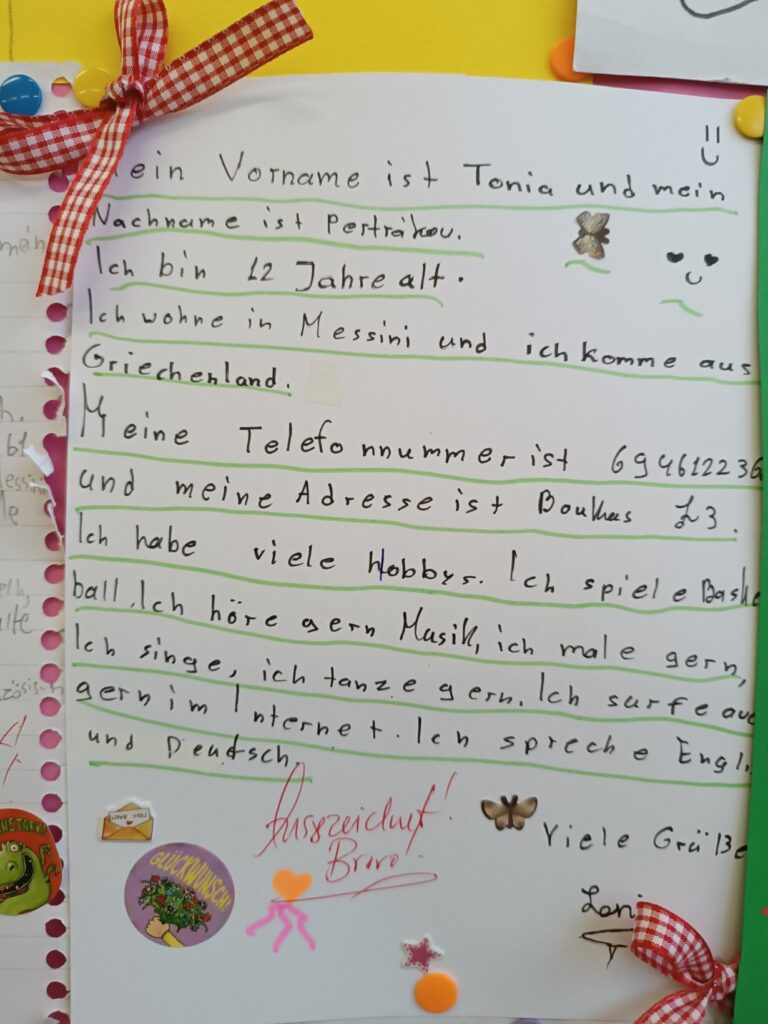 ein Vorname ist Tonia und mein
Nachname ist
Ich bin 12 Jahre alt.
Ich wohne in Messini und ich komme aus
Griechenland.
Meine Telefonnummer ist 694612236
und meine Adresse ist 23.
Ich habe viele Hobbys. Ich spiele Baske
ball. Ich höre gern Musik, ich male gern,
Ich singe, ich tanze gern. Ich surfe auc
gern im Internet. Ich spreche Engl
und Deutsch.
LOVE YOU
GLÜCKWUNSCH!
Auszeichnet!
Bravo!
Viele Grüße